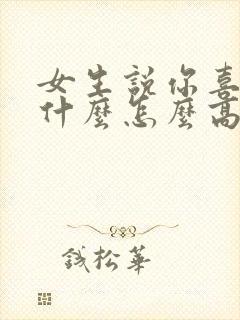 女生說你喜
什麼怎麼高
錢松華